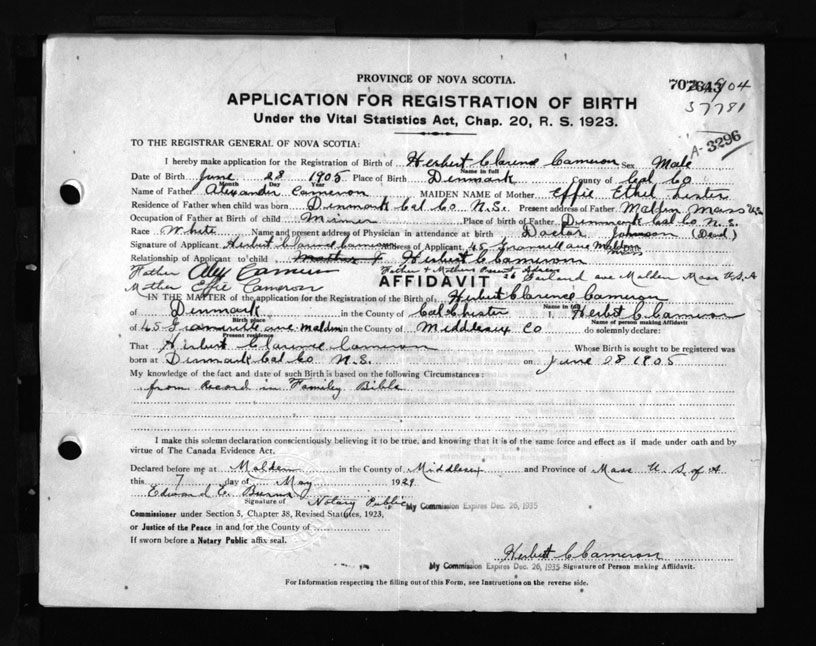 PROVINCE OF NOVA SCOTIA.
APPLICATION FOR REGISTRATION OF BIRTH
37781
Under the Vital Statistics Act, Chap. 20, R. S. 1923.
A-3296
TO THE REGISTRAR GENERAL OF NOVA SCOTIA:
I hereby make application for the Registration of Birth of Herbert Clarence Cameron Sex Male
Name in full
Date of Birth June 28 1905 Place of Birth Denmark County of Col Co
Month Day Year
Name of Father Alexander Cameron MAIDEN NAME of Mother Effie Ethel
Residence of Father when child was born Denmark Col Co N.S. Present address of Father Malden Mass
Occupation of Father at Birth of child Miner Place of birth of Father Denmark Col Co N.S.
Race White Name and present address of Physician in attendance at birth Doctor Johnson (Dead)
Signature of Applicant Herbert Clarence Cameron Address of Applicant 45 ave Malden Mass
Relationship of Applicant to child Herbert C Cameron
Father Alex Cameron Father & Mothers Present Adress
AFFIDAVIT 26 ave Malden Mass U.S.A
Mother Effie Cameron
IN THE MATTER of the application for the Registration of the Birth of Herbert Clarence Cameron
of Denmark in the County of Colchester I, Herbert C Cameron
Birth place Name of person making Affidavit
of 45 ave Malden in the County of Middlesex Co do solemnly declare:
Present residence
That Herbert Clarence Cameron Whose Birth is sought to be registered was
born at Denmark Col Co N.S. on June 28 1905
My knowledge of the fact and date of such Birth is based on the following Circumstances:
from Record in Family Bible
I make this solemn declaration conscientiously believing it to be true, and knowing that it is of the same force and effect as if made under oath and by
virtue of The Canada Evidence Act.
Declared before me at Malden in the County of Middlesex and Province of Mass U.S. of A
this 7 day of May 1929
Edward Notary Public My Commission Expires Dec. 26, 1935
Signature of
Commissioner under Section 5, Chapter 38, Revised Statutes, 1923,
or Justice of the Peace in and for the County of
If sworn before a Notary Public affix seal.
Herbert C Cameron
My Commission Expires Dec. 26, 1935 Signature of Person making Affidavit.
For Information respecting the filling out of this Form, see Instructions on the reverse side.